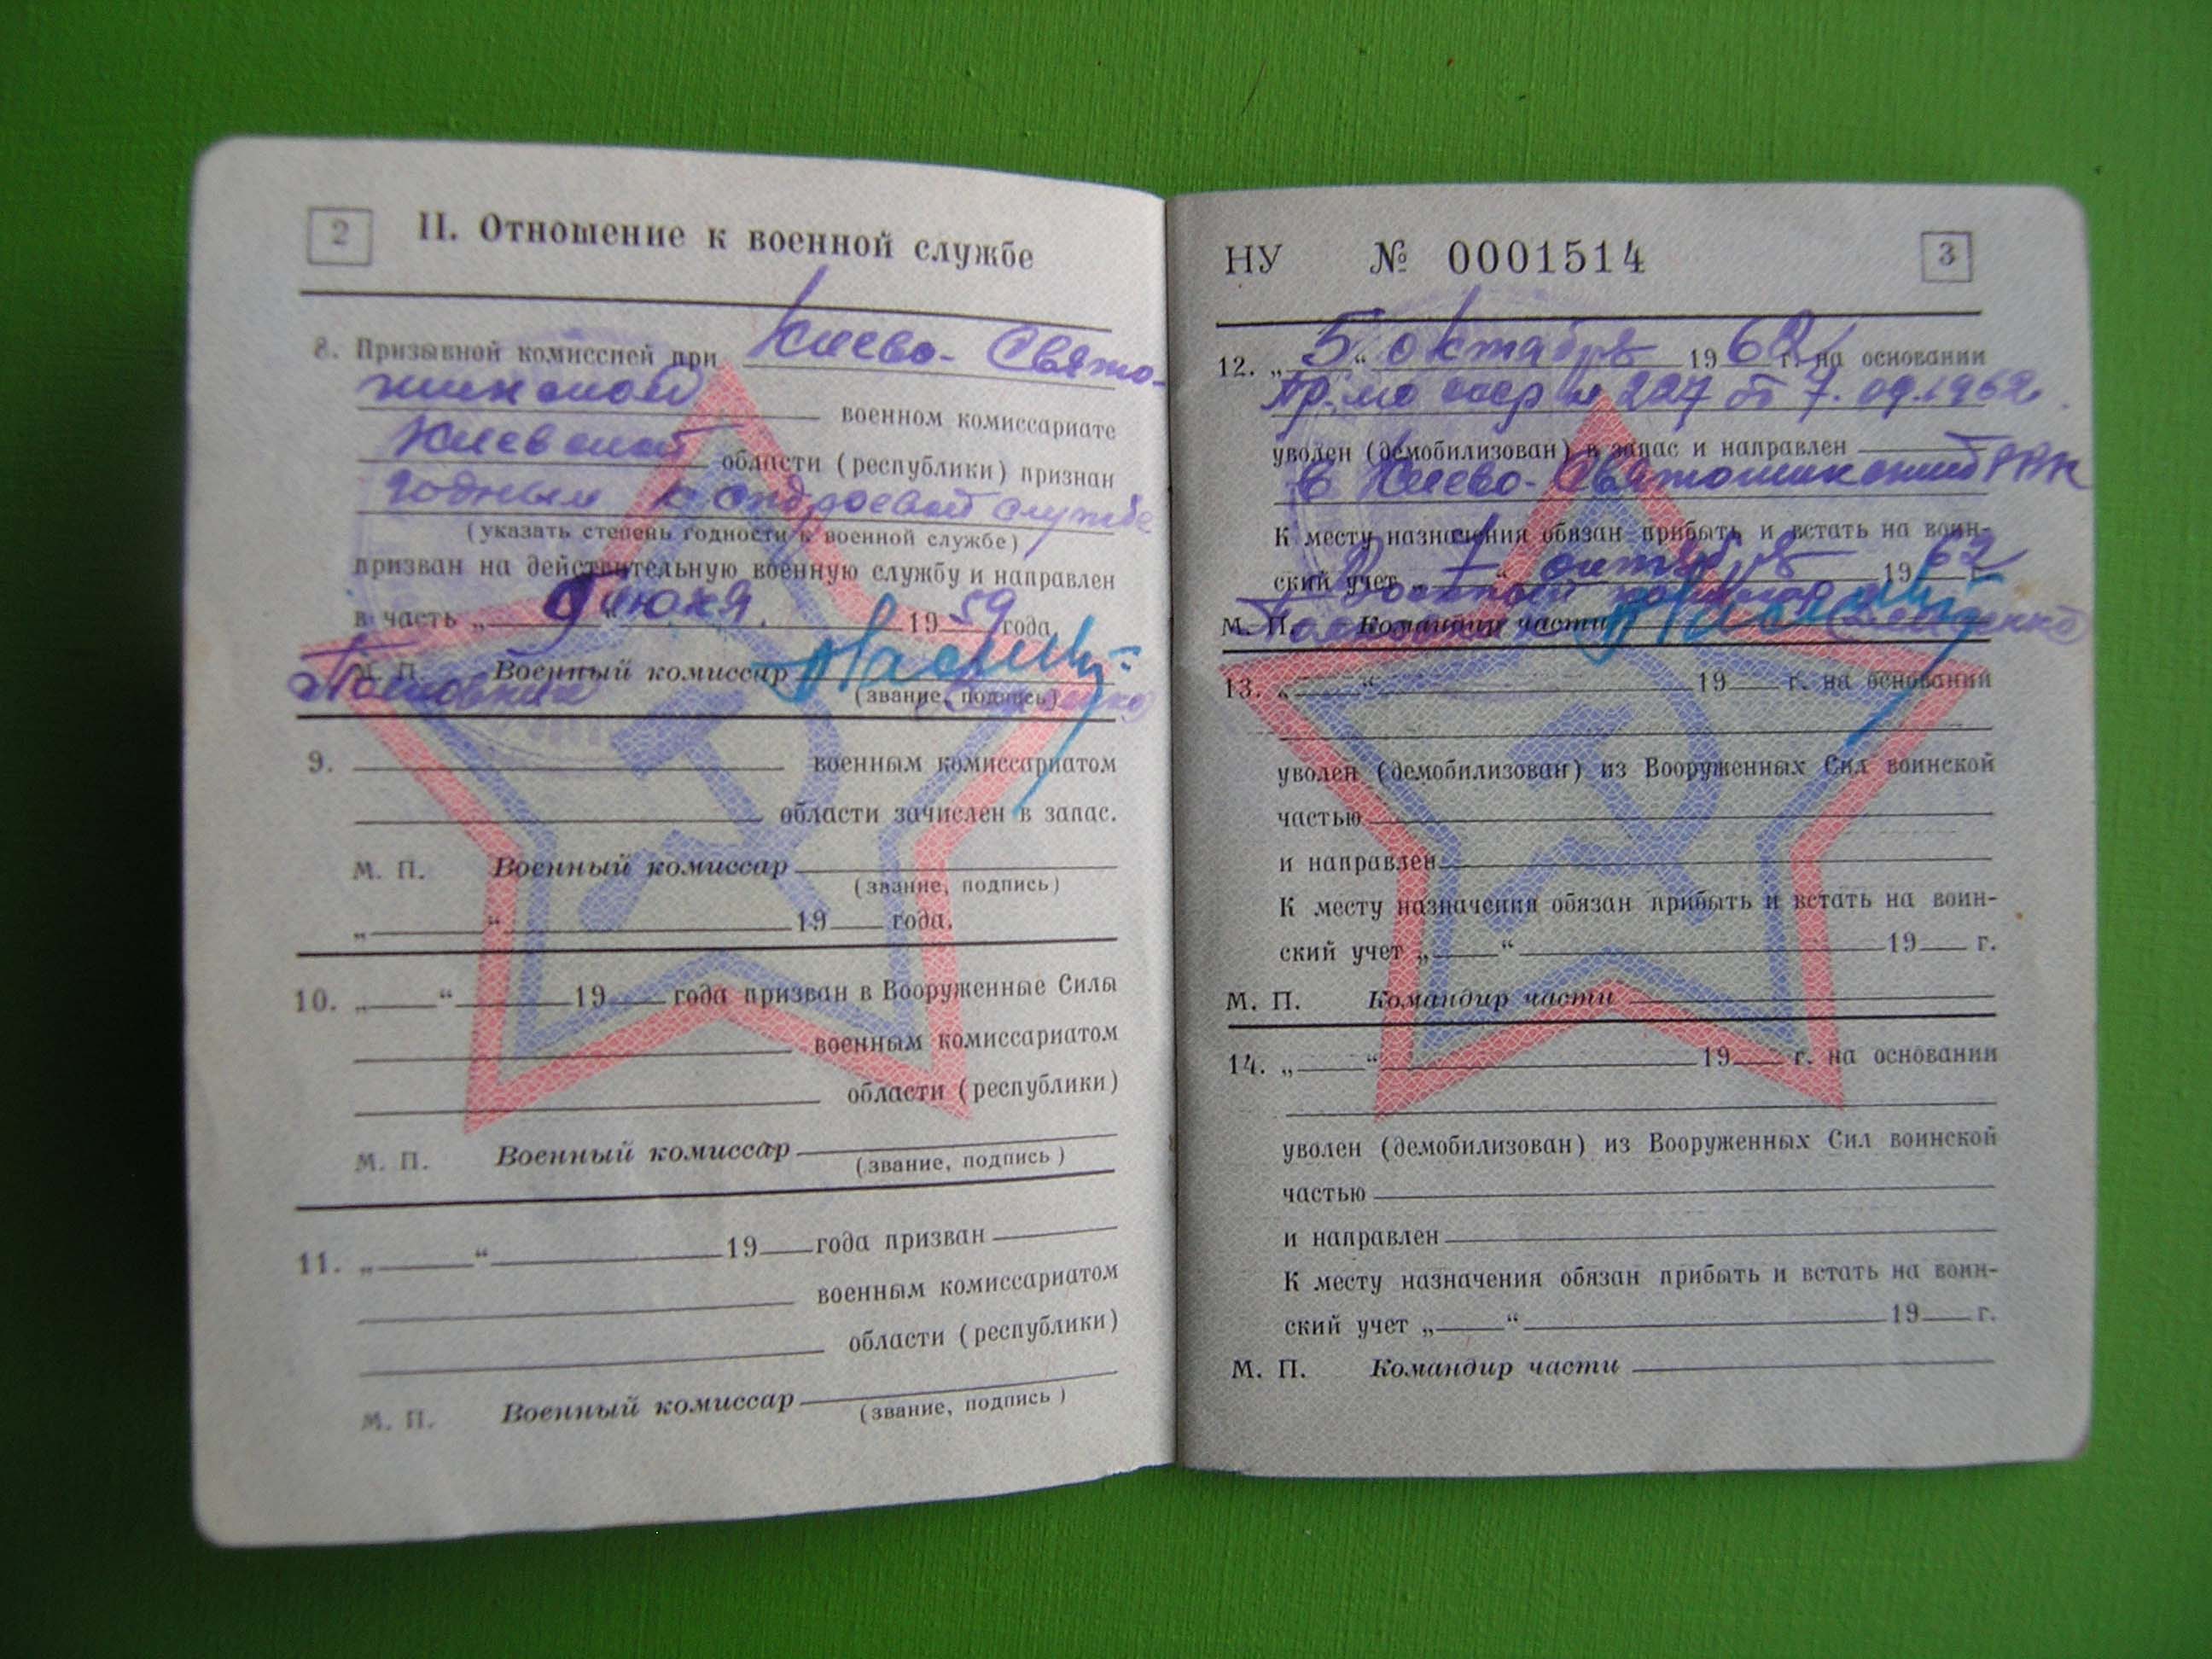 2
II. Отношение к военной службе
8. Призывной комиссией при Киево-Свято-
шинском военном комиссариате
Киевской области (республики) признан
годным к строевой службе
(указать степень годности к военной службе)
призван на действительную военную службу и направлен
в часть „ “ июля. 1959 года
М. П. Военный комиссар
Полковник (звание, подпись)
9. военным комиссариатом
области зачислен в запас.
М. П. Военный комиссар
(звание, подпись)
„ “ 19 года.
10. „ “ 19 года призван в Вооруженные Силы
военным комиссариатом
области (республики)
М. П. Военный комиссар
(звание, подпись)
11. „ “ 19 года призван
военным комиссариатом
области (республики)
М. П. Военный комиссар
(звание, подпись)
НУ № 0001514
3
12. „5“ октября 1962 г. на основании
Пр. мо ссср № 227 от 7.09.1962.
уволен (демобилизован) в запас и направлен
в Киево-Святошинский РВК
К месту назначения обязан прибыть и встать на воин-
ский учет „7“ октября 1962 г.
М. П. Командир части
13. „ “ 19 г. на основании
уволен (демобилизован) из Вооруженных Сил воинской
частью
и направлен
К месту назначения обязан прибыть и встать на воин-
ский учет „ “ 19 г.
М. П. Командир части
14. „ “ 19 г. на основании
уволен (демобилизован) из Вооруженных Сил воинской
частью
и направлен
К месту назначения обязан прибыть и встать на воин-
ский учет „ “ 19 г.
М. П. Командир части